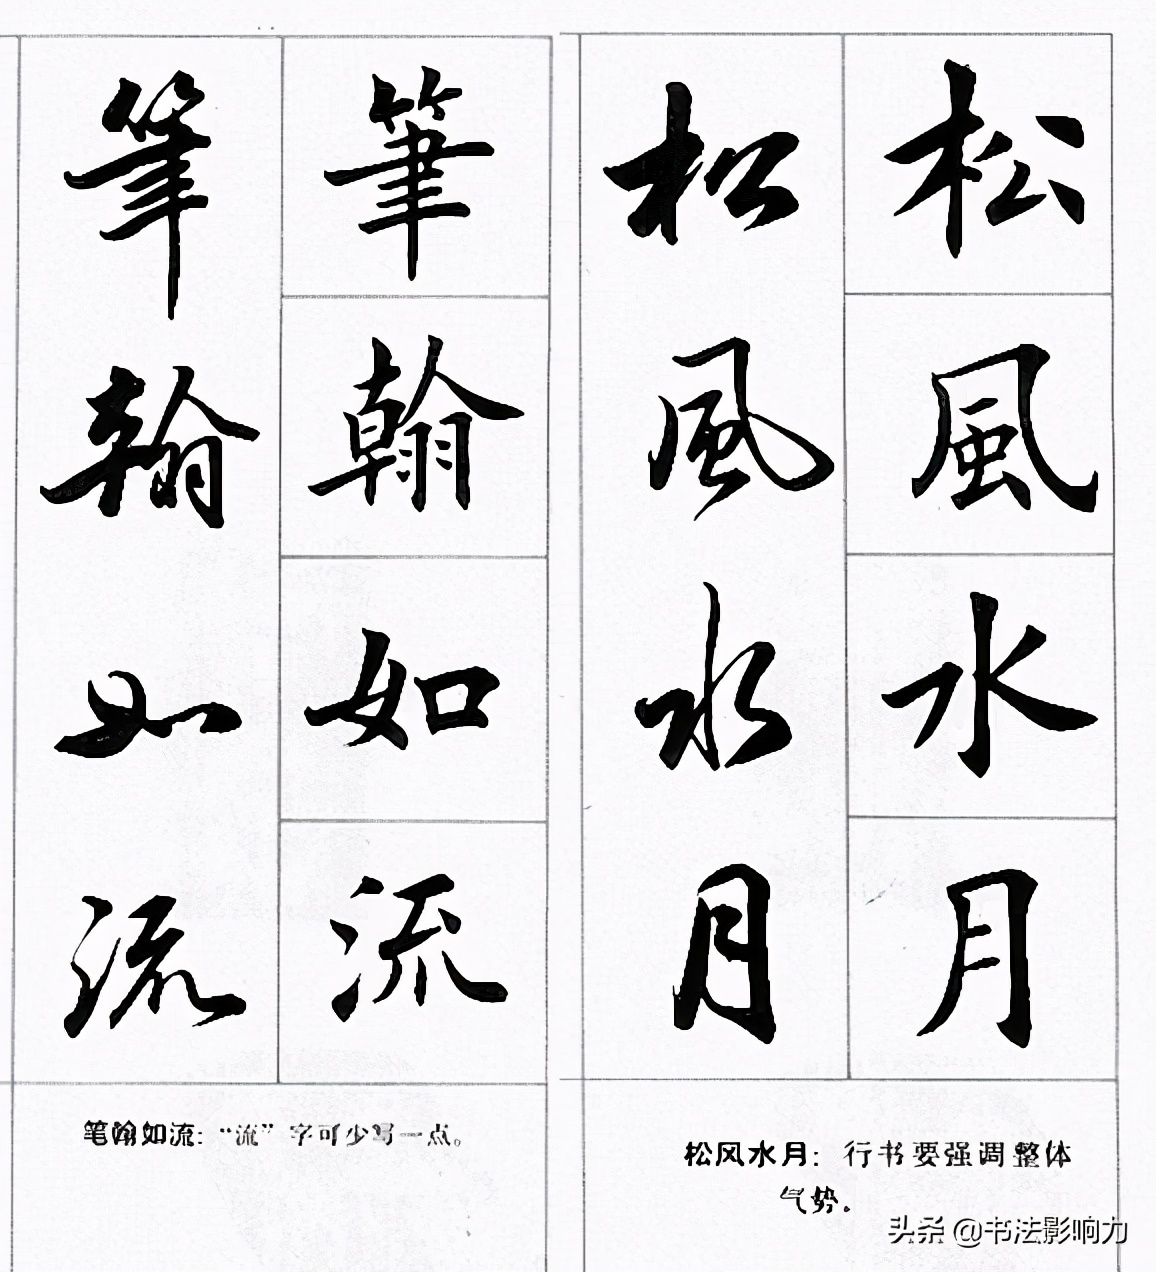 松風水月
松風水月
筆翰如流
筆翰如流
松风水月：行书要强调整体
气势。
笔翰如流：“流”字可少写一点。
头条 @书法影响力